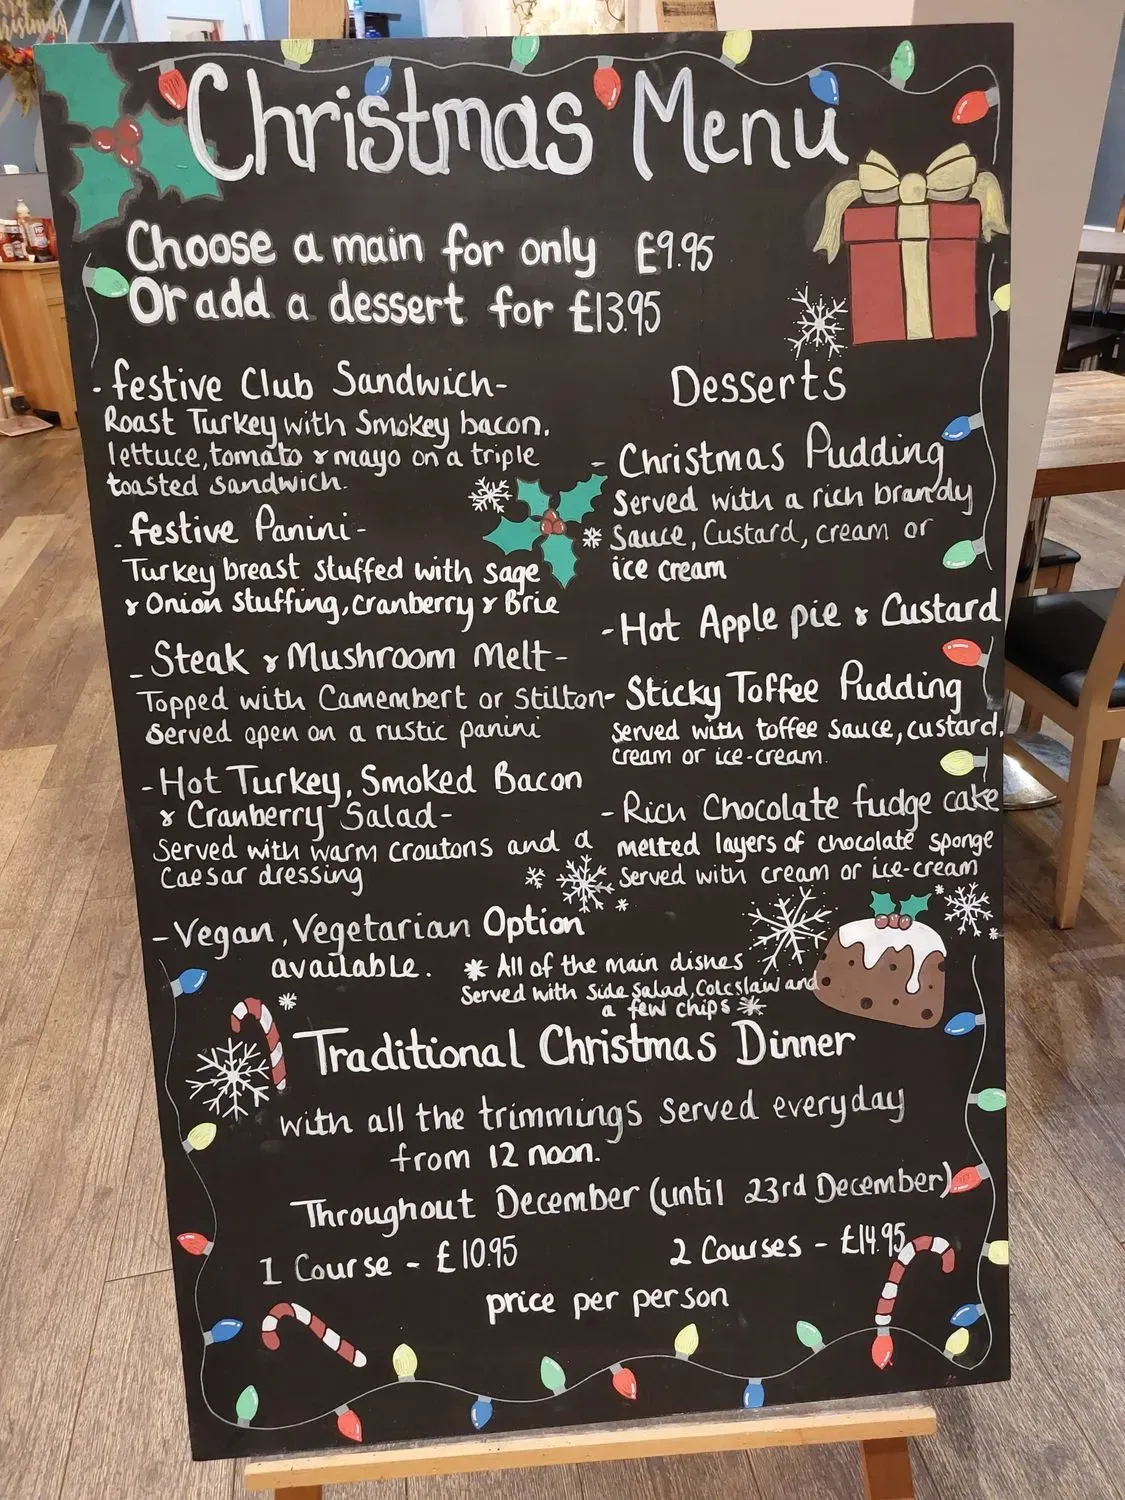 Christmas Menu
Choose a main for only £9.95
Or add a dessert for £13.95
- festive Club Sandwich-
Roast Turkey with Smokey bacon,
lettuce, tomato & mayo on a triple
toasted sandwich.
- festive Panini-
Turkey breast stuffed with sage
& Onion stuffing, cranberry & Brie
- Steak & Mushroom Melt-
Topped with Camembert or Stilton-
Served open on a rustic panini
- Hot Turkey, Smoked Bacon
& Cranberry Salad-
Served with warm croutons and a
Caesar dressing
- Vegan, Vegetarian Option
available.
Desserts
- Christmas Pudding
Served with a rich brandy
Sauce, Custard, cream or
ice cream
- Hot Apple pie & Custard
Sticky Toffee Pudding
Served with toffee sauce, custard,
cream or ice-cream.
- Rich Chocolate fudge cake
melted layers of chocolate sponge
Served with cream or ice-cream
* All of the main dishes
Served with side salad, Coleslaw and
a few chips *
Traditional Christmas Dinner
with all the trimmings served everyday
from 12 noon.
Throughout December (until 23rd December)
1 Course - £10.95
2 Courses - £14.95
price per person